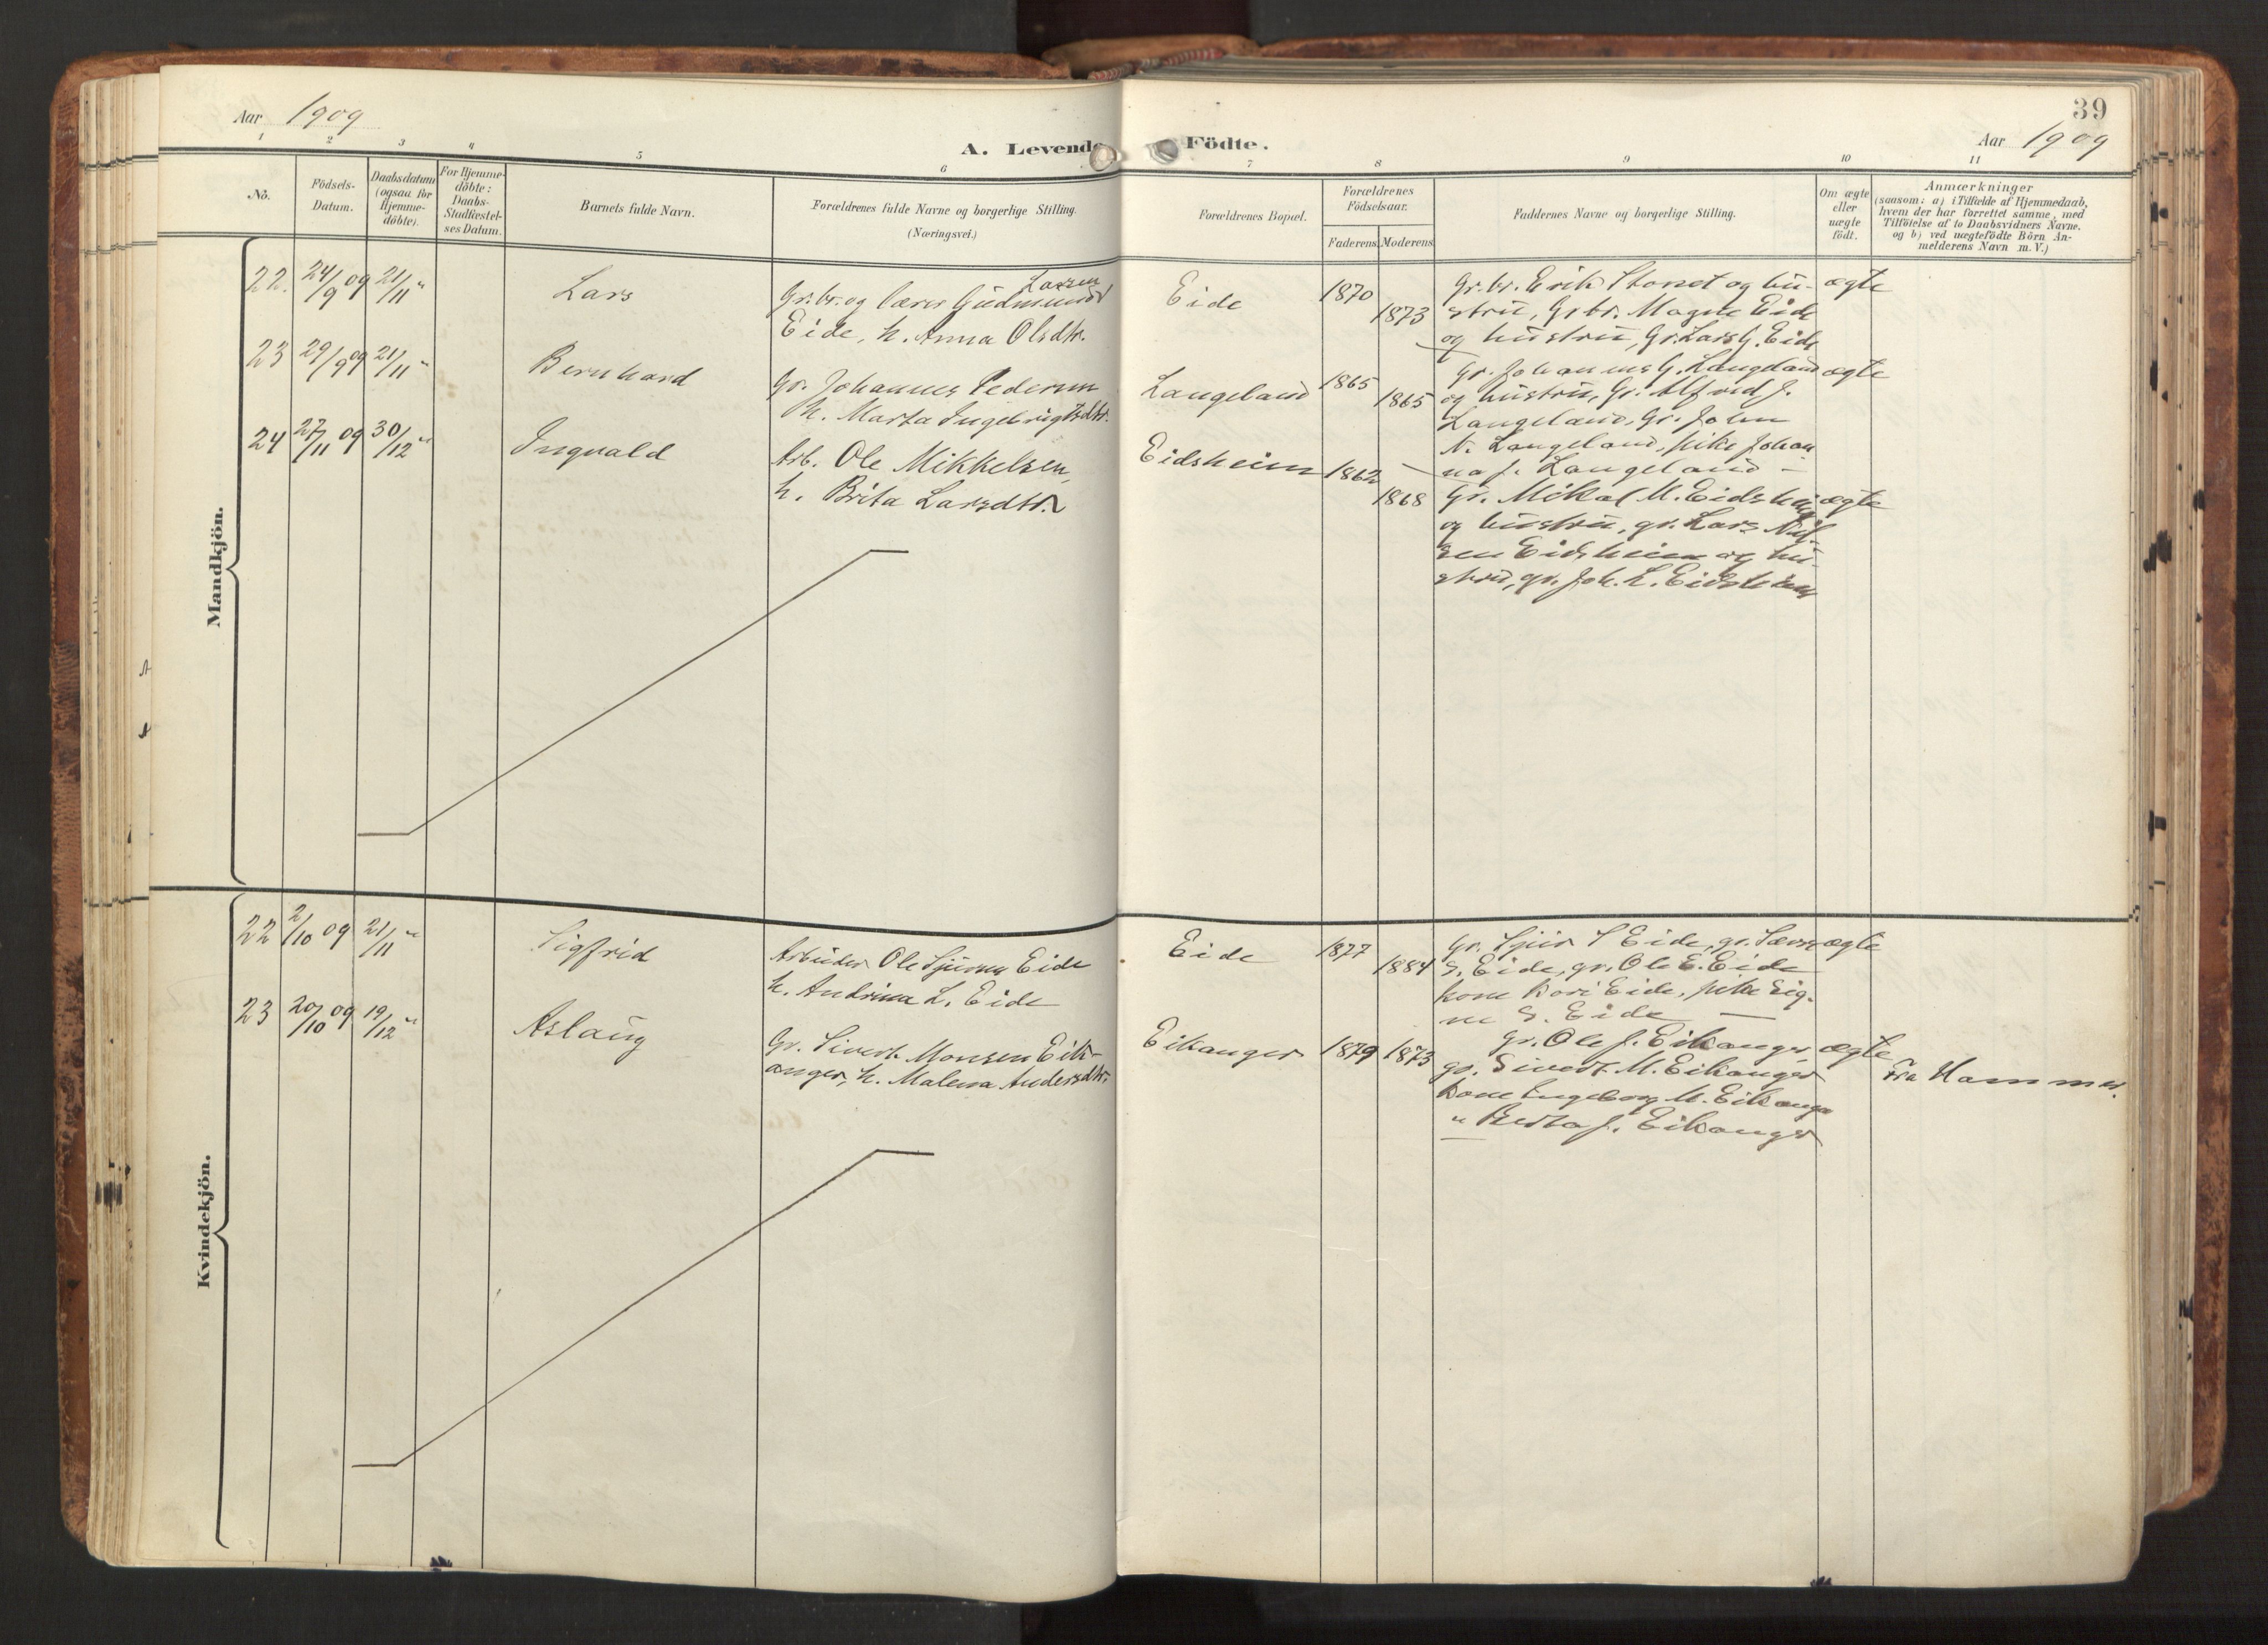 39
Aar 1909
A. Levende Födte.
Aar 1909
1 2 3 4 5 6 7 8 9 10 11
No.
Födsels-
Datum.
Daabsdatum
(ogsaa for
Hjemme-
döbte).
For Hjemme-
döbte:
Daabs-
Stadfæstel-
ses Datum.
Barnets fulde Navn.
Forældrenes fulde Navne og borgerlige Stilling.
(Næringsvei.)
Forældrenes Bopæl.
Forældrenes
Födselsaar.
Faderens. Moderens.
Faddernes Navne og borgerlige Stilling.
Om ægte
eller
uægte
födt.
Anmærkninger
(saasom: a) i Tilfælde af Hjemmedaab,
hvem der har forrettet samme, med
Tilföielse af to Daabsvidners Navne.
og b) ved uægtefödte Börn An-
melderens Navn m. V.)
Mandkjön.
22. 24/9 09 21/11 "
Lars
Larsen
Gr.br. og lærer Gudmund
Eide, h. Anna Olsdtr.
Eide
1870
1873
Gr.br. Erik Storset og hu-
stru, Gr.br. Magne Eide
og hustru, Gr. Lars G. Eide
ægte
23 29/9 09 21/11 "
Bernhard
Gr. Johannes Pedersen
h. Marta Ingebrigtsdtr.
Langeland
1865
1865
Gr. Johannes G. Langeland
og hustru, Gr. Alfred J.
Langeland, Gr. John
N. Langeland, pike Johan
na J. Langeland —
ægte
24 27/11 09 30/12 "
Ingvald
Arb. Ole Mikkelsen,
h. Brita Larsdtr.
Eidsheim
1862
1868
Gr. Mikal M. Eidsheim
og hustru, gr. Lars Nil-
sen Eidsheim og hu-
stru, gr. Joh. L. Eidsheim
ægte
Kvindekjön.
22 2/10 09 21/11 "
Sigfrid
Arbeider Ole Sjursen Eide
h. Andrina L. Eide
Eide
1877
1884
Gr. Sjur S Eide, gr.
S. Eide, gr. Ole E. Eide
kone Kari Eide, pike Sig-
ne S. Eide —
ægte
23 20/10 09 19/12 "
Aslaug
Gr. Sivert Monsen Eik-
anger, h. Malena Andersdtr.
Eikanger
1879
1873
Gr. Ole J. Eikanger,
gr. Sivert M. Eikanger
kone Ingeborg M. Eikanger
" Berta J. Eikanger
ægte
Fra Hammer.